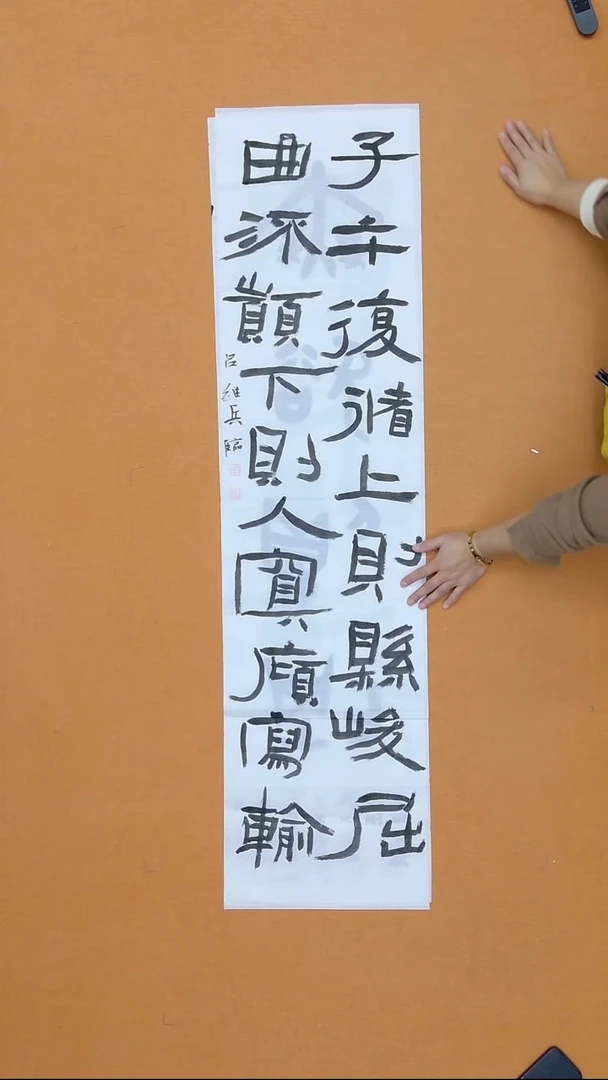 子午復循上則縣峻屈
曲流顛下則入寘廎寫輸
吕维兵臨